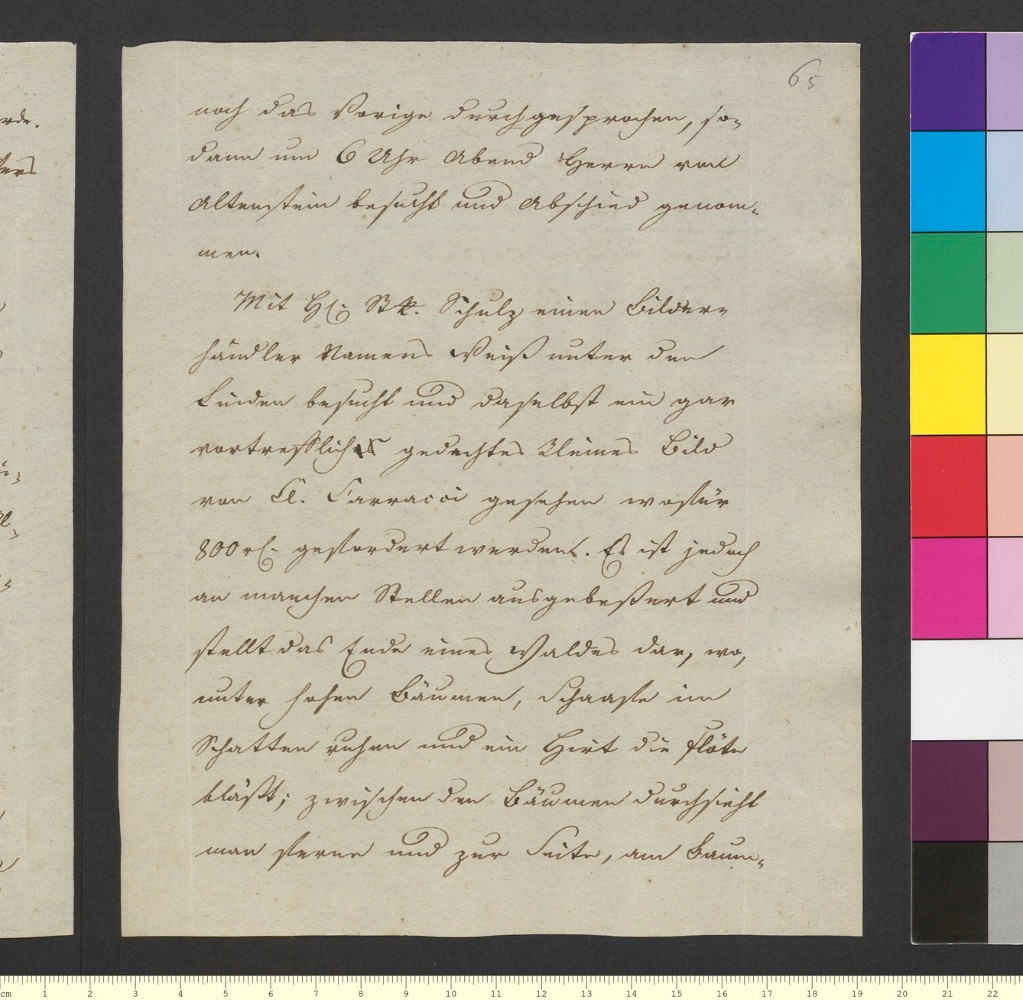 65
noch das Vorige durchgesprochen, so-
dann um 6 Uhr Abend Herrn von
Altenstein besucht und Abschied genom-
men.
Mit H. StR. Schulz einen Bilder-
händler Namens Weiß unter den
Linden besucht und daselbst ein gar
vortreffliches gedachtes kleines Bild
von A. Carracci gesehen wofür
800 rl. gefordert werden. Es ist jedoch
an manchen Stellen ausgebeßert und
stellt das Ende eines Waldes dar, wo,
unter hohen Bäumen, Schaafe im
Schatten ruhen und ein Hirt die Flöte
bläßt; zwischen den Bäumen durchsieht
man ferne und zur Seite, am Baum-
rde.